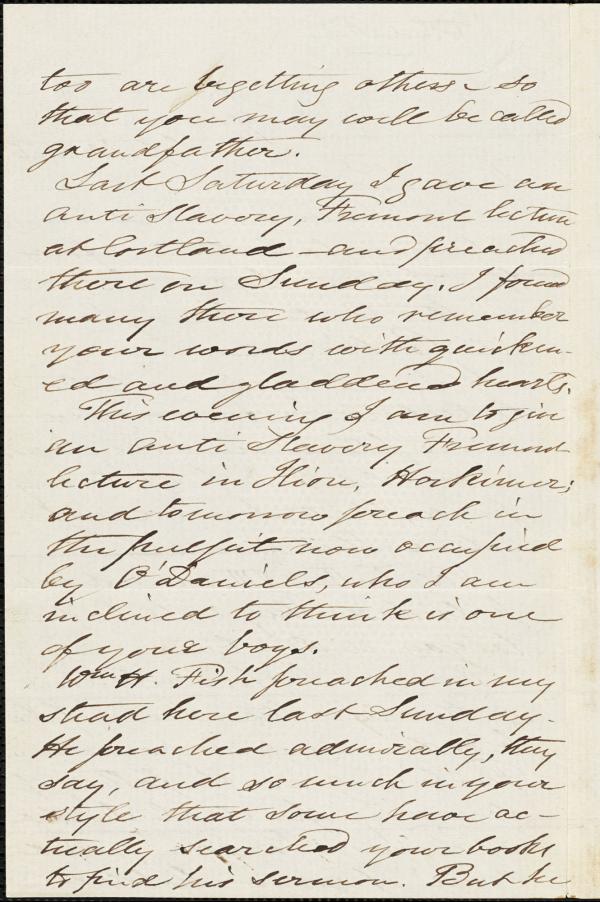 too are begetting others - so
that you may well be called
grandfather.
Last Saturday I gave an
anti Slavery, Fremont lecture
at Cortland - and preached
there on Sunday. I found
many there who remember
your words with quicken-
ed and gladdened hearts.
This evening I am to give
an anti Slavery Fremont
lecture in Ilion, Herkimer;
and tomorrow preach in
the pulpit now occupied
by O'Daniels, who I am
inclined to think is one
of your boys.
Wm H. Fish preached in my
stead here last Sunday.
He preached admirally, they
say, and so much in your
style that some have ac-
tually searched your books
to find his sermon. But he